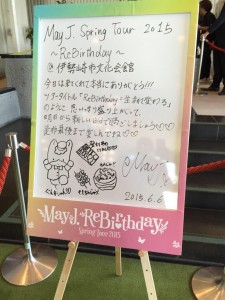 May J. Spring Tour 2015
～ReBirthday～
@ 伊勢崎市文化会館
今日は来てくれて本当にありがとう!!!
ツアータイトル「ReBirthday=生まれ変わる」の
ように 思いっきり盛り上がって、
明日から新しい自分で過ごしましょう
是非最後まで楽しんでね
ぐんまちゃん
May J.
2015.6.6
May J. ReBirthday
Spring Tour 2015